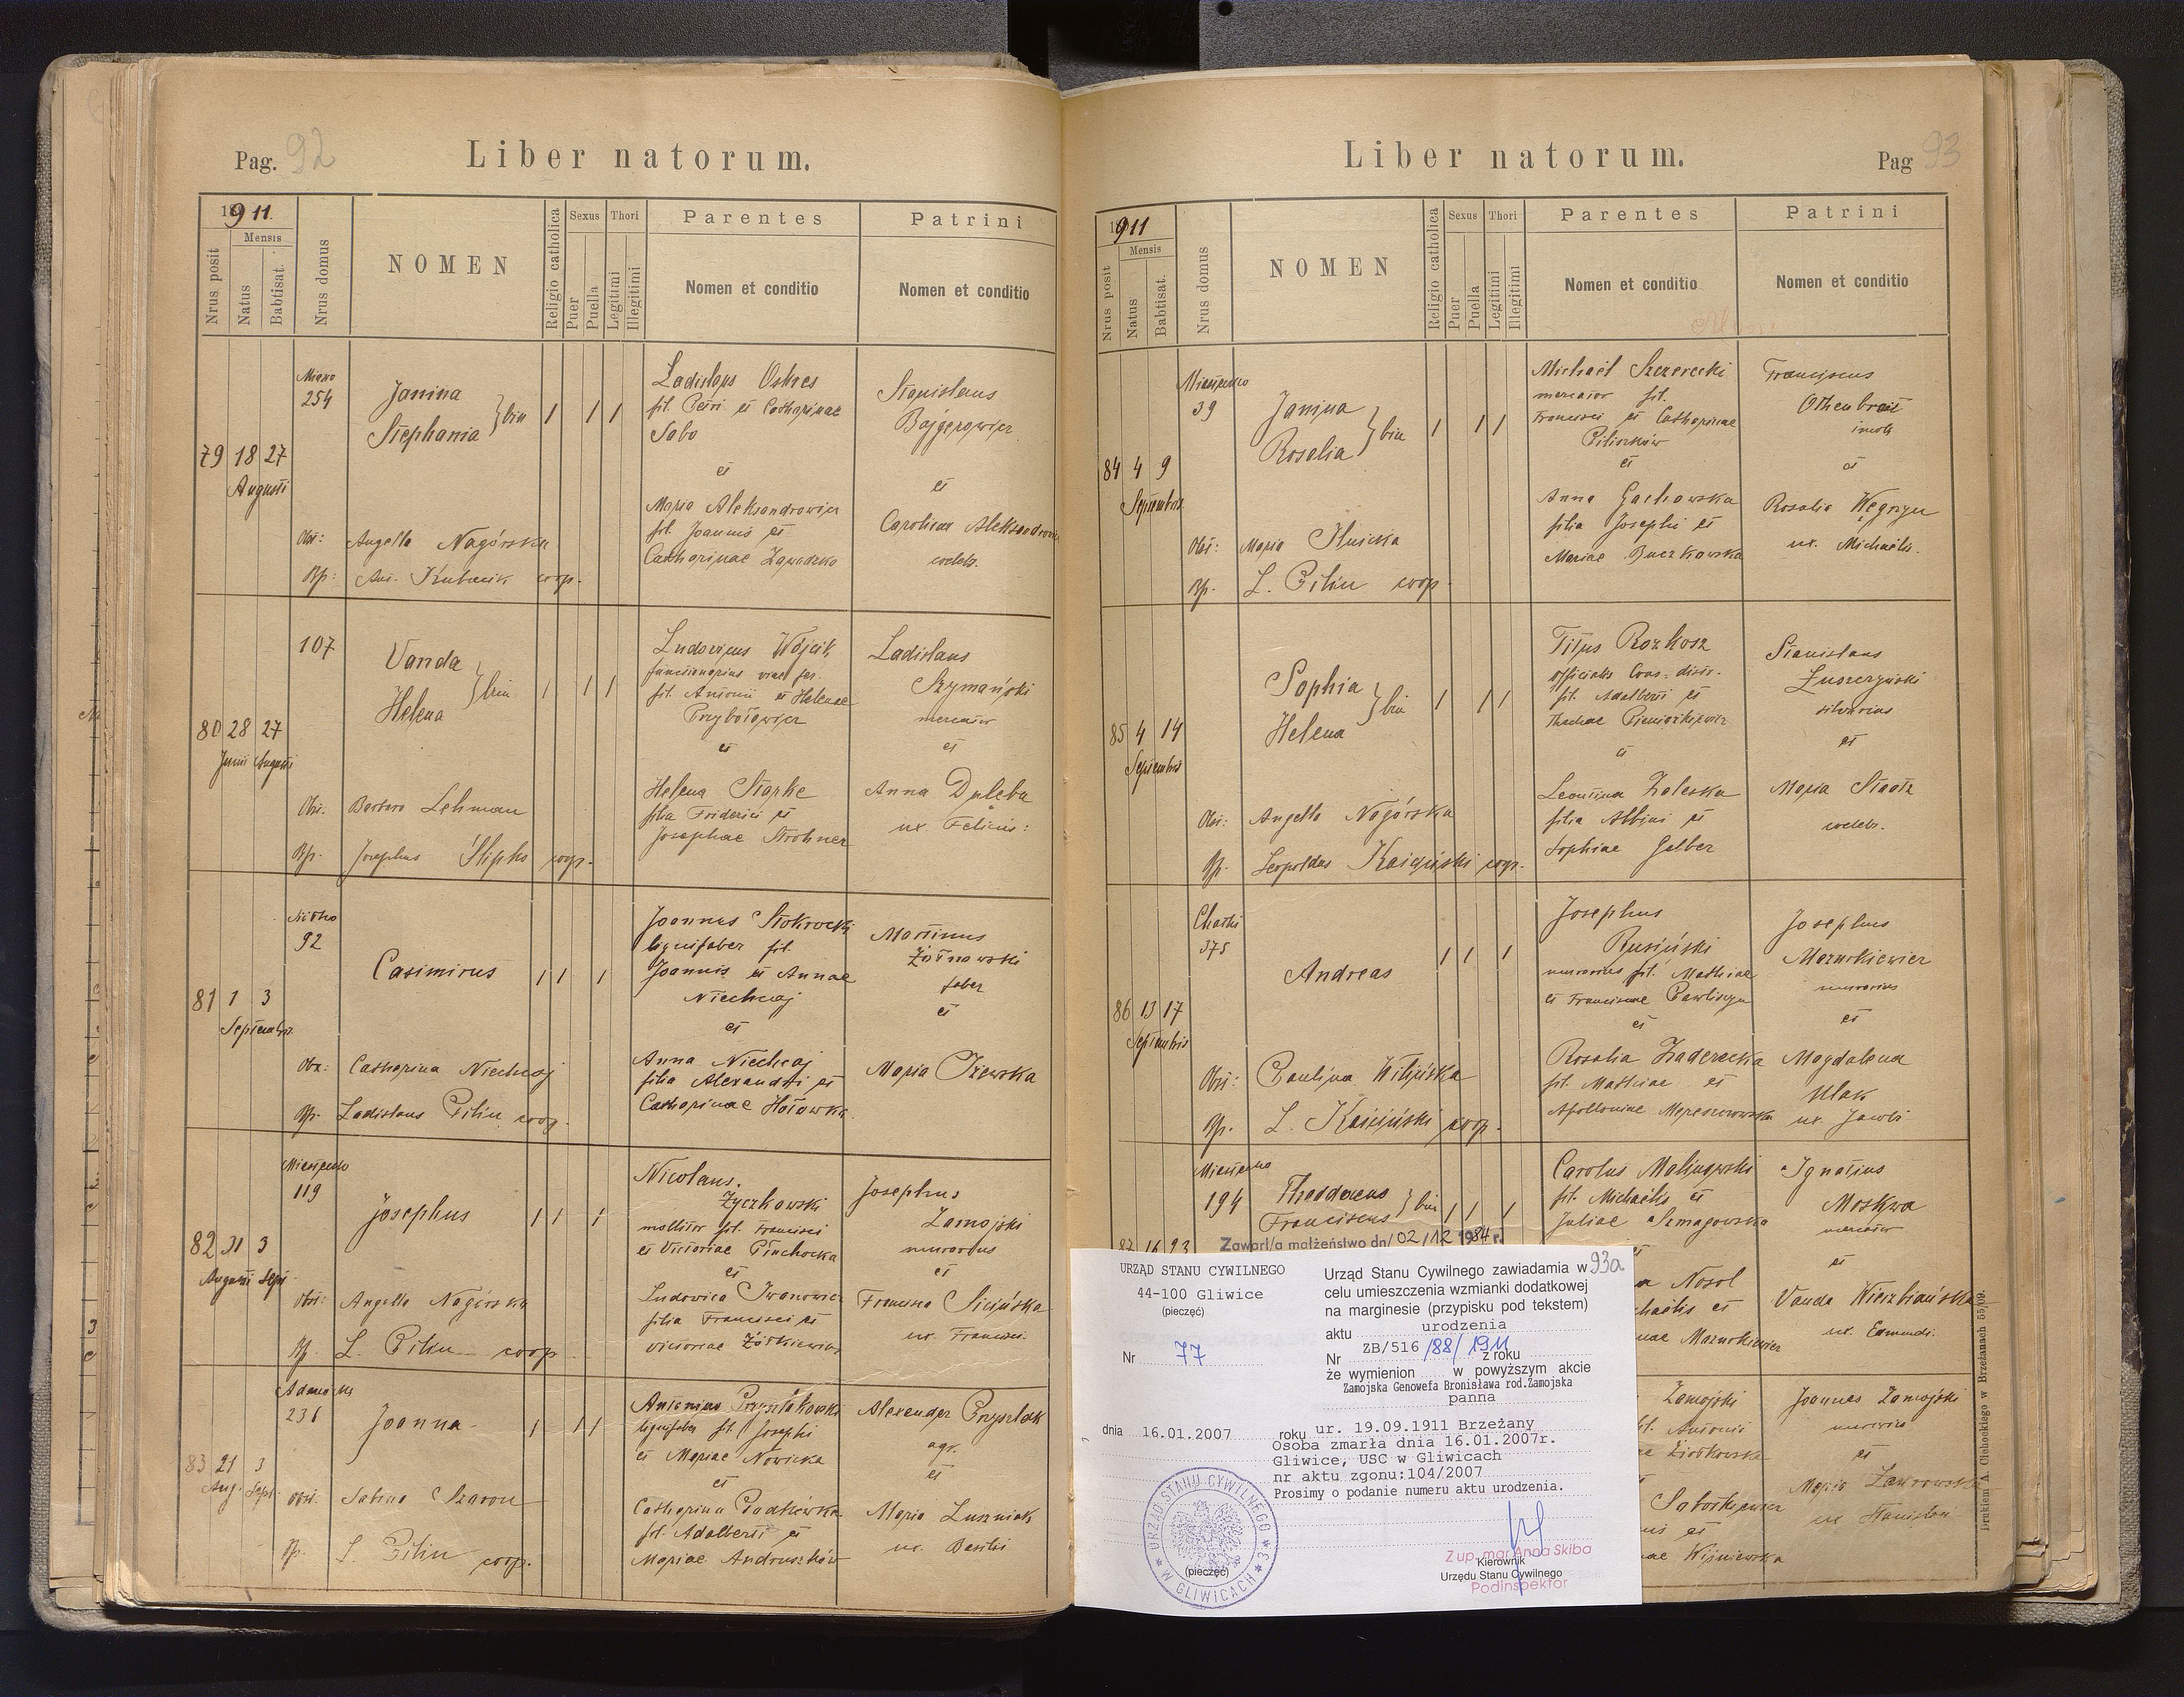 Pag. 92
Liber natorum.
1911.
Nrus posit
Mensis
Natus
Babtisat.
Nrus domus
NOMEN
Religio catholica
Sexus
Puer
Puella
Thori
Legitimi
Illegitimi
Parentes
Nomen et conditio
Patrini
Nomen et conditio
79 18 27
Augusti
254
Janina
Stephania } bin
Obs: Angella Nagórska
Bp: Ant. Kubacik coop.
fil. Petri et Catharinae
Sabo
et
Maria Aleksandrowicz
fil. Joannis et
Catharinae Zawadzka
Stanislaus
et
Carolina
coeleb.
80 28 27
Junii Augusti
107
Vanda
Helena } bin
Obs. Barbara Lehman
Bp. Josephus Ślipko coop.
Ludovicus Wójcik
fil. Antonii et Helenae
et
Helena Starke
filia Friderici et
Josephae Strohner
Ladislaus
Szymański
mercator
et
Anna Duleba
ux. Felicis:
81 1 3
Septembris
92
Casimirus
Catharina Niechcaj
Bp. Ladislaus Pilin coop.
Joannes Stokrocki
lignifaber fil.
Joannis et Annae
Niechcaj
et
Anna Niechcaj
filia Alexandri et
Catharinae Hołowka
Martinus
Żółnowski
faber
et
Maria
82 31 3
Augusti Sept.
Miasteczko
119
Josephus
Obs: Angella Nagórska
Bp. L. Pilin coop
Nicolaus
Życzkowski
molitor fil. Francisci
et Victoriae
et
Ludovica Iwanowicz
filia Francisci et
Victoriae Żółkiewicz
Josephus
Zamojski
murarius
et
Francisca Sicińska
ux. Francisci.
83 21 3
Aug. Sept.
236
Joanna
Obst. Sabina Szaron
Bp. L. Pilin coop.
Antonius
lignifaber fil. Josephi
et Mariae Nowicka
et
Catharina
fil. Adalberti et
Mariae Andruszków
Alexander Przyszlak
agr.
et
Maria Luszniak
ux. Basilii
Liber natorum.
Pag 93
1911
Nrus posit
Mensis
Natus
Babtisat.
Nrus domus
NOMEN
Religio catholica
Sexus
Puer
Puella
Thori
Legitimi
Illegitimi
Parentes
Nomen et conditio
Patrini
Nomen et conditio
84 4 9
Septembris
Miasteczko
39
Janina
Rosalia } bin
Obs: Maria Ilnicka
Bp. L. Pilin coop.
Michael Szczerecki
mercator fil.
Francisci et Catharinae
et
Anna Gachowska
filia Josephi et
Mariae Buczkowska
Franciscus
Othenbreit
et
Rosalia Węgrzyn
ux. Michaelis.
85 4 14
Septembris
Sophia
Helena } bin
Obs: Angella Nagórska
Bp. Leopoldus Kaiciński coop.
Titus Rozkosz
fil. Adalberti et
et
Leontina Zaleska
filia Albini et
Sophiae Gelber
Stanislaus
Łuszczyński
silvarius
et
Maria Staatz
coeleb.
86 13 17
Septembris
375
Andreas
Obs: Paulina Wilińska
Bp. L. Kaiciński coop.
Josephus
Rusiński
murarius fil. Mathiae
et Franciscae Pawliszyn
et
Rosalia Zaderecka
fil. Mathiae et
Apolloniae
Josephus
Mazurkiewicz
murarius
et
Magdalena
Ulak
ux. Jacobi
87 16 23
Miasteczko
194
Theodorus
Franciscus } bin
Zawarł/a małżeństwo dn/02/12 1934 r.
Carolus Malinowski
fil. Michaelis et
Juliae Szmagowska
et
a Nosol
chaelis et
nae Mazurkiewicz
Ignatius
Moskwa
mercator
et
Vanda Wierzbiańska
ux. Edmundi.
Zamojski
fil. Antonii
ae Ziółkowska
nis et
nae Wiśniewska
Joannes Zamojski
murarius
et
Maria
ux. Stanislai
Drukiem A. Cichockiego w Brzeżanach 55/09.
93a
URZĄD STANU CYWILNEGO
44-100 Gliwice
(pieczęć)
Nr 77
dnia 16.01.2007 roku
Urząd Stanu Cywilnego zawiadamia w
celu umieszczenia wzmianki dodatkowej
na marginesie (przypisku pod tekstem)
aktu urodzenia
Nr ZB/516 /88/1911 z roku
że wymienion w powyższym akcie
Zamojska Genowefa Bronisława rod.Zamojska
panna
ur. 19.09.1911 Brzeżany
Osoba zmarła dnia 16.01.2007r.
Gliwice, USC w Gliwicach
nr aktu zgonu:104/2007
Prosimy o podanie numeru aktu urodzenia.
URZĄD STANU CYWILNEGO * 3 * W GLIWICACH *
(pieczęć)
Z up. mgr Anna Skiba
Kierownik
Urzędu Stanu Cywilnego
Podinspektor